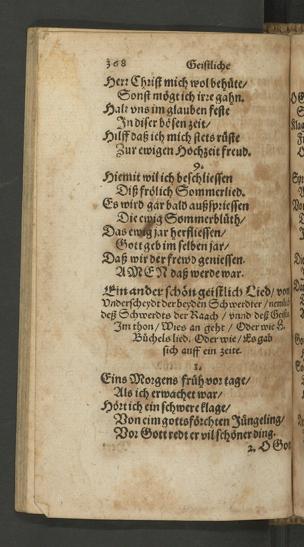 368 Geistliche
Herr Christ mich wol behüte/
Sonst mögt ich irre gahn.
Halt vns im glauben feste
In diser bösen zeit/
Hilff daß ich mich stets rüste
Zur ewigen Hochzeit freud.
9.
Hiemit wil ich beschliessen
Diß frölich Sommerlied.
Es wird gar bald außspriessen
Die ewig Sommerblüth/
Das ewig jar herfliessen/
Gott geb im selben jar/
Daß wir der frewd geniessen.
AMEN daß werde war.
Ein ander schön geistlich Lied/ von
Vnderscheydt der beyden Schwerdter/
deß Schwerdts der Raach/ vnnd deß
Im thon/ Wies an geht/ Oder wie H.
Büchels lied. Oder wie/ Es gab
sich auff ein zeite.
1.
Eins Morgens früh vor tage/
Als ich erwachet war/
Hört ich ein schwere klage/
Von eim gottsförchten Jüngeling/
Vor Gott redt er vil schöner ding.
2. O Gott